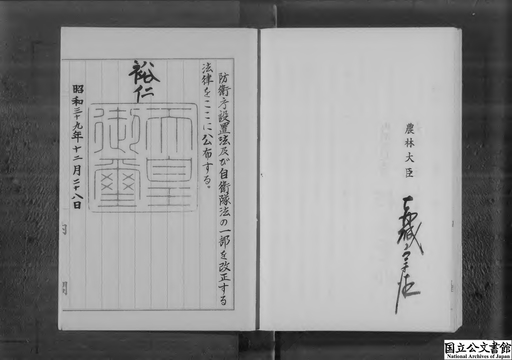 農林大臣
赤城宗徳
防衛庁設置法及び自衛隊法の一部を改正する
法律をここに公布する。
裕仁
天皇
御璽
昭和三十九年十二月二十八日
国立公文書館
National Archives of Japan